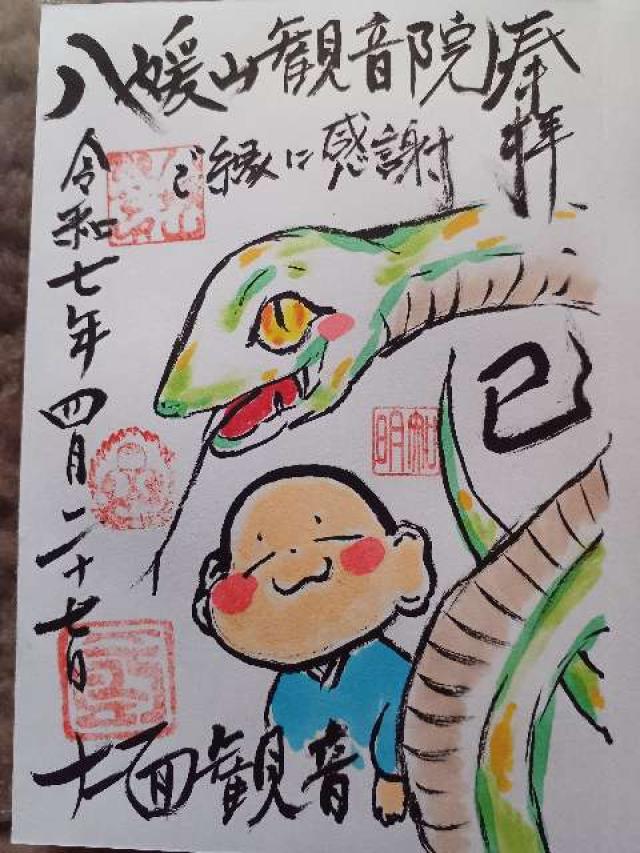 八媛山観音院
奉拝
ご縁に感謝
令和七年四月二十七日
巳
明和
十一面観音